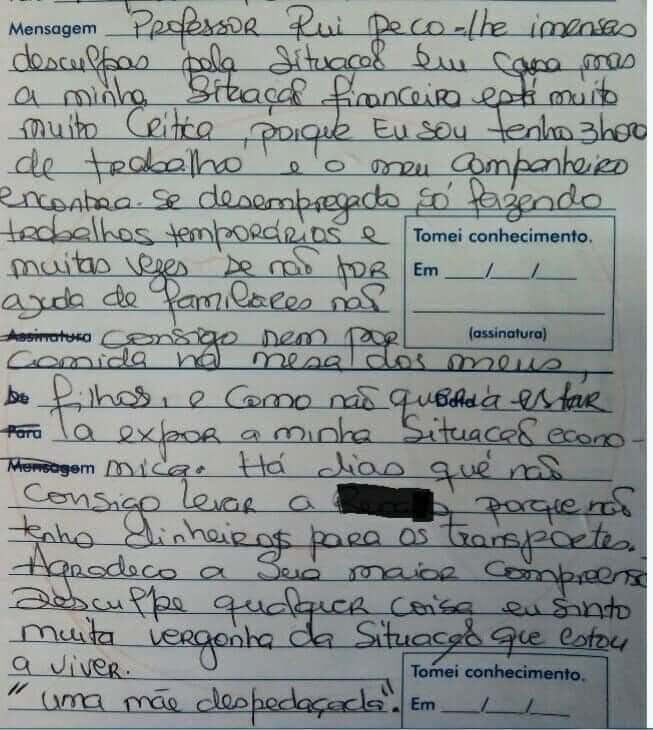 Mensagem Professor Rui peco-lhe imensas
desculpas pela situação em causa mas
a minha situação financeira está muito
muito Critica, porque Eu sou tenho 3hora
de trabalho e o meu companheiro
encontra-se desempregado só fazendo
trabalhos temporários e
muitas vezes se não for
ajuda de familiares não
Assinatura consigo nem por
comida na mesa dos meus,
De filhos, e como não queria estar
Para la expor a minha situação econo-
Mensagem mica. Há dias qué não
consigo levar a porque não
tenho dinheiros para os transportes.
Agradeco a sua maior compreensã
Desculpe qualquer coisa eu sinto
muita vergonha da situação que estou
a viver.
"uma mãe despedaçada".
Tomei conhecimento.
Em ___/___/___
(assinatura)
Tomei conhecimento.
Em ___/___/___